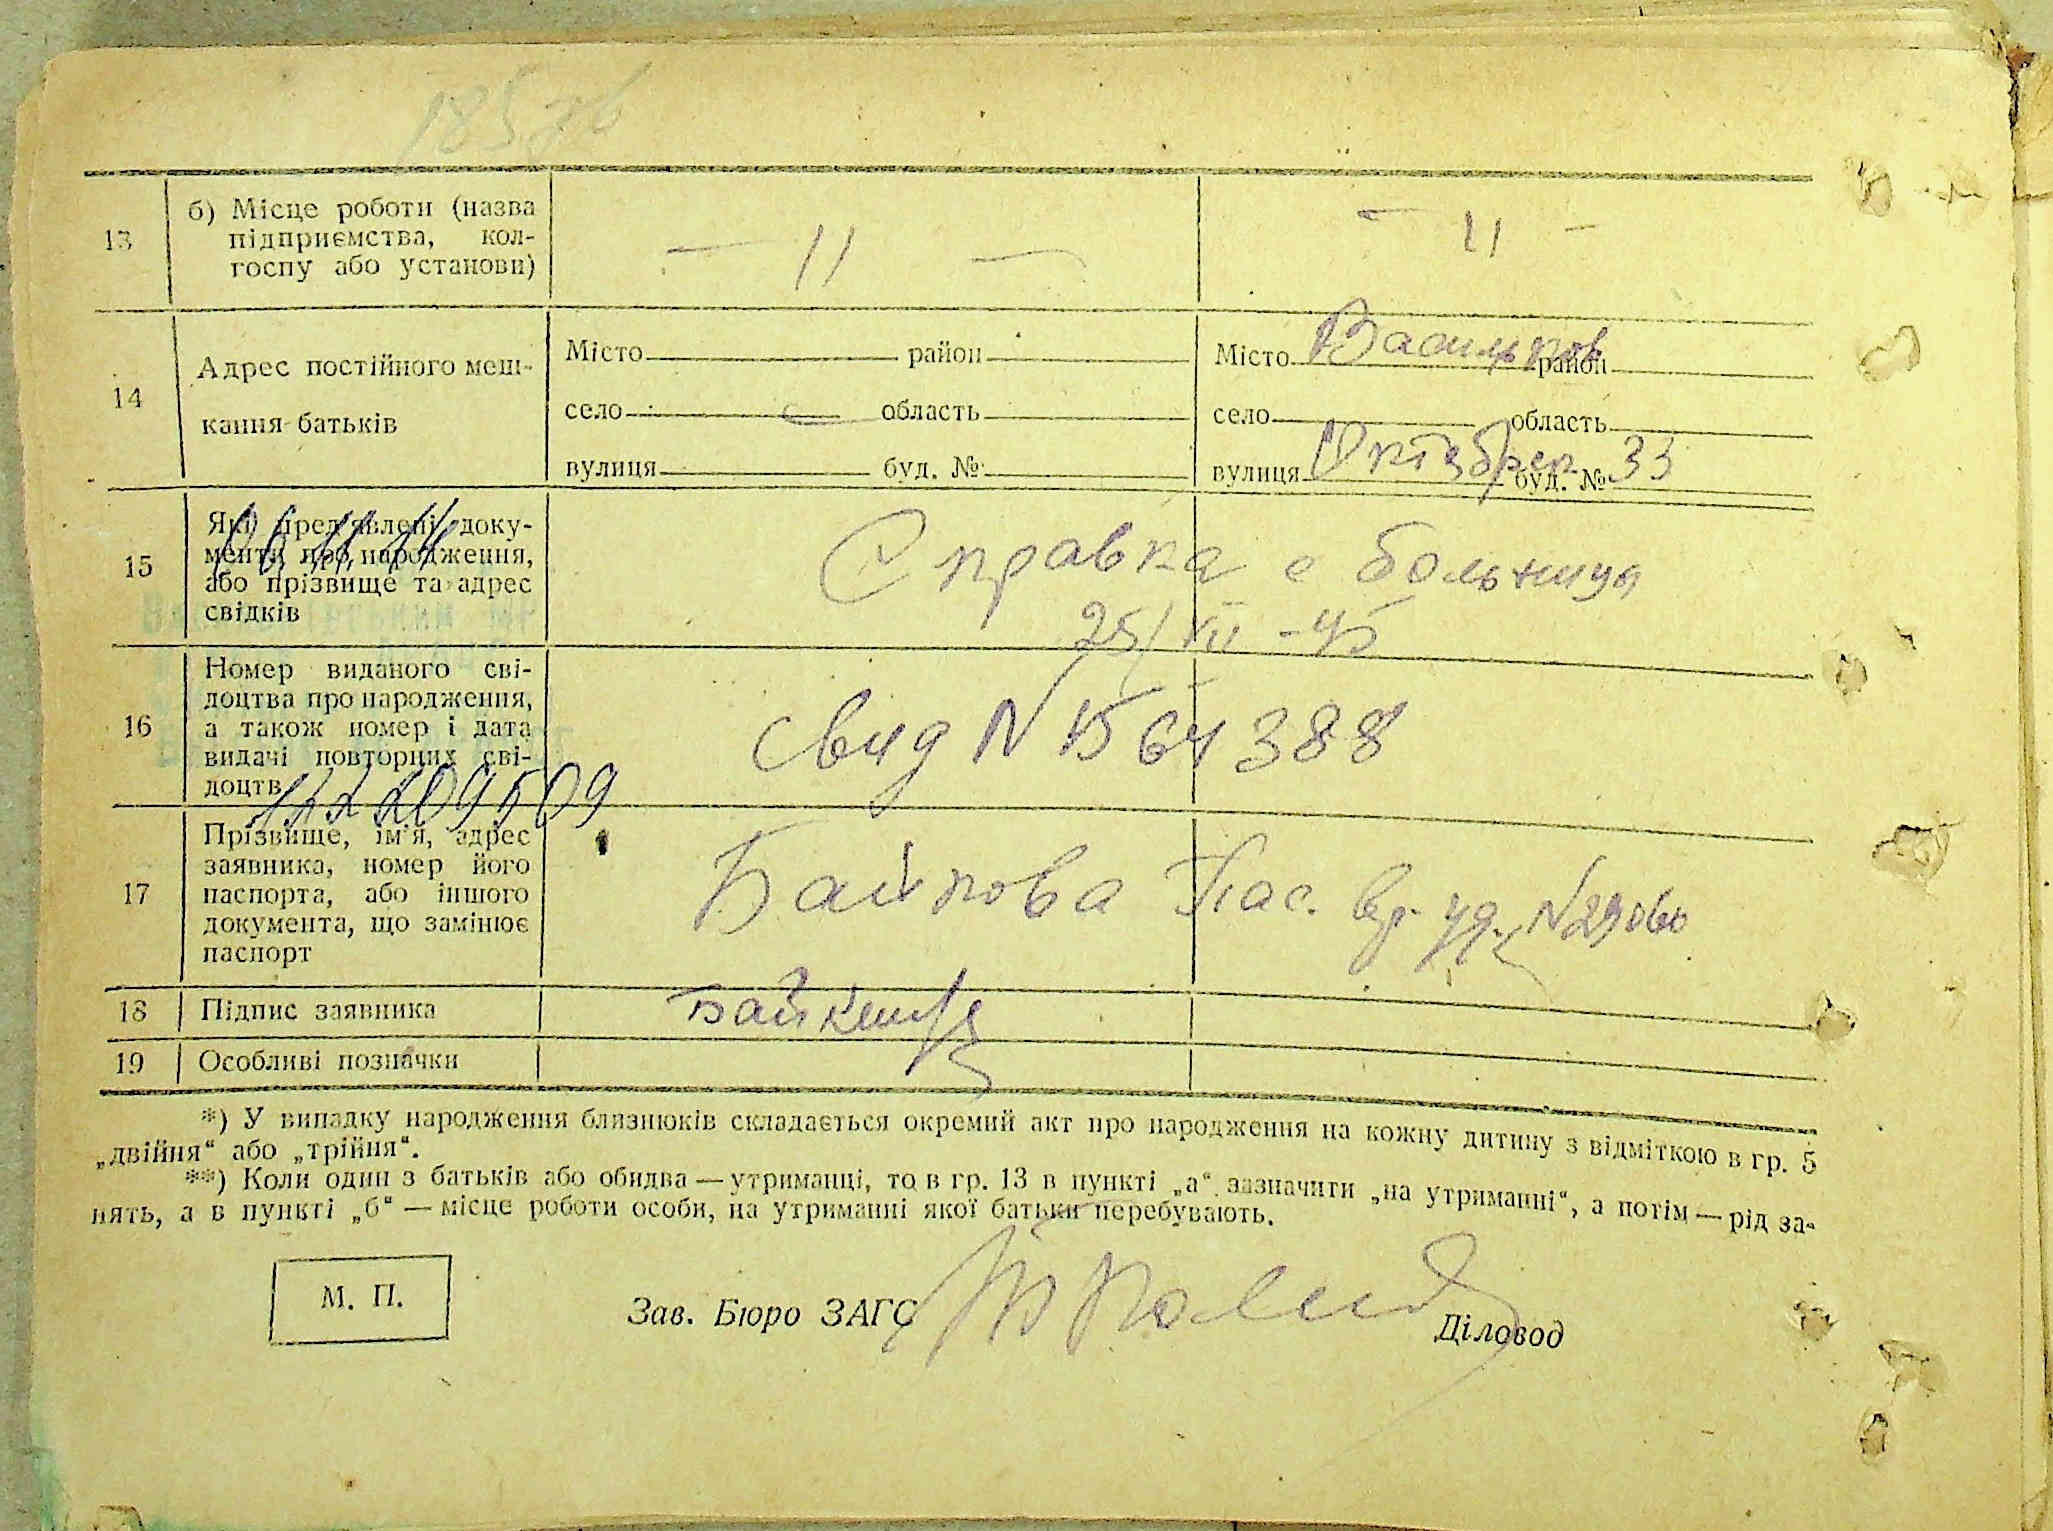 185 зв
13
б) Місце роботи (назва
підприємства, кол-
госпу або установи)
— 11 —
— 11 —
14
Адрес постійного меш-
кання батьків
Місто район
село — область
вулиця буд. №
Місто Васильков район
село область
вулиця Октябрск буд. № 33
15
Які пред'явлені доку-
менти про народження,
або прізвище та адрес
свідків
Справка с больницы
25/VII-45
16
Номер виданого сві-
доцтва про народження,
а також номер і дата
видачі повторних сві-
доцтв
свид N 1564388
17
Прізвище, ім'я, адрес
заявника, номер його
паспорта, або іншого
документа, що замінює
паспорт
Байкова Пас. вр. уд. N 29060
18 Підпис заявника
19 Особливі позначки
*) У випадку народження близнюків складається окремий акт про народження на кожну дитину з відміткою в гр. 5
„двійня“ або „трійня“.
**) Коли один з батьків або обидва — утриманці, то в гр. 13 в пункті „а“ зазначити „на утриманні“, а потім — рід за-
нять, а в пункті „б“ — місце роботи особи, на утриманні якої батьки перебувають.
М. П.
Зав. Бюро ЗАГС
Діловод